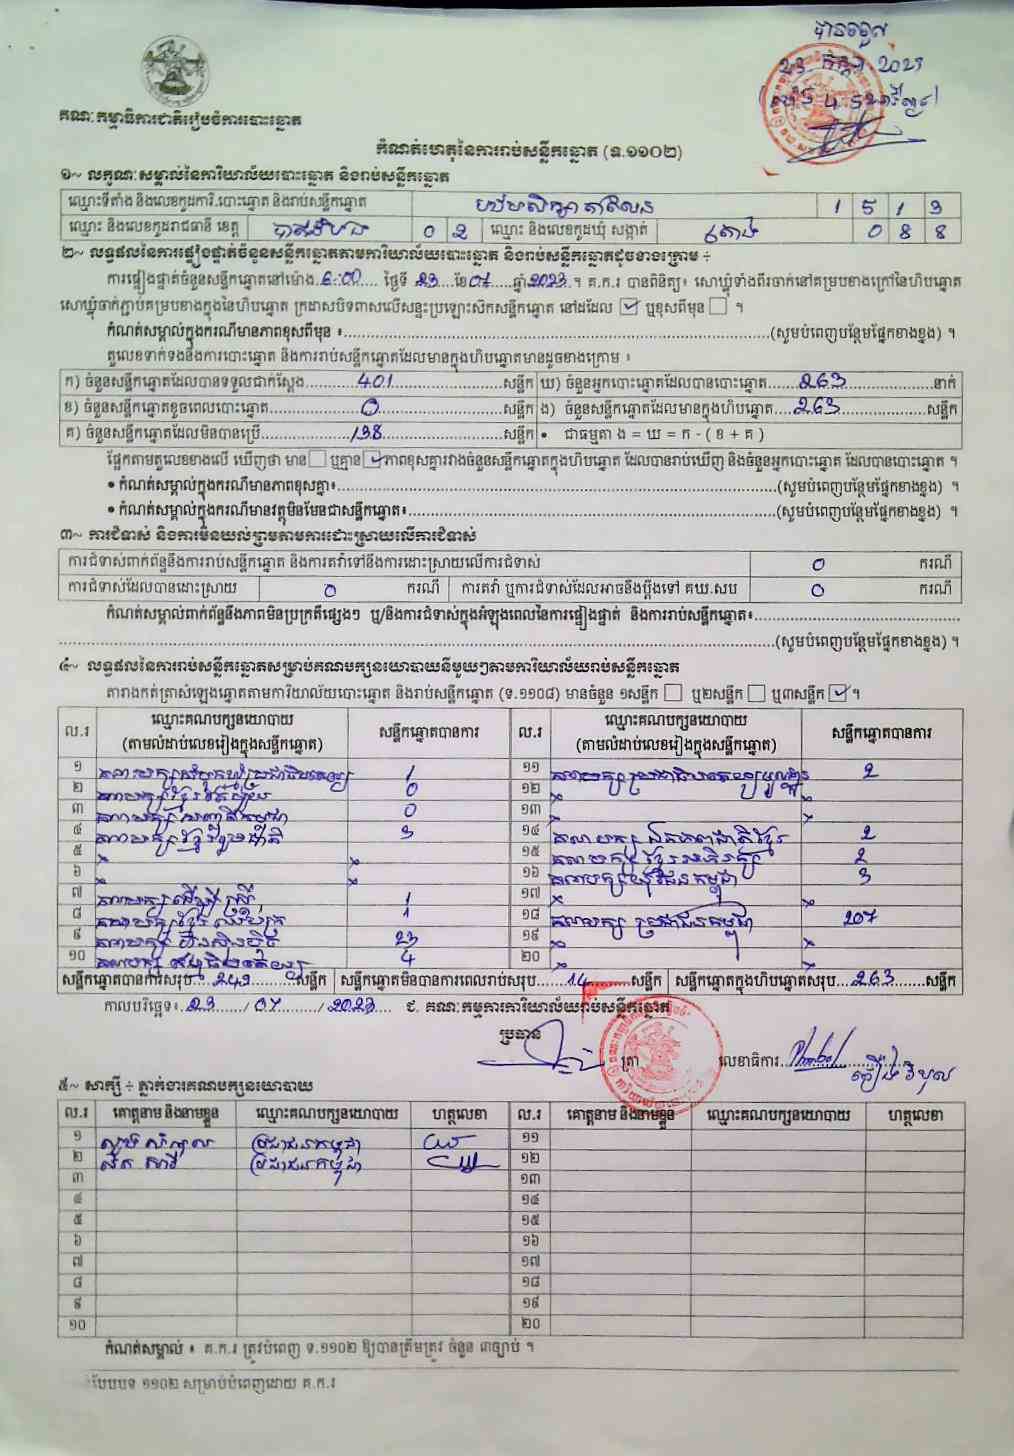 បានចម្លង
23 កក្កដា 2023
គណៈកម្មាធិការជាតិរៀបចំការបោះឆ្នោត
កំណត់ហេតុនៃការរាប់សន្លឹកឆ្នោត (ទ.១១០២)
១~ លក្ខណៈសម្គាល់នៃការិយាល័យបោះឆ្នោត និងរាប់សន្លឹកឆ្នោត
ឈ្មោះទីតាំង និងលេខកូដការិ.បោះឆ្នោត និងរាប់សន្លឹកឆ្នោត បឋមសិក្សា តាលែន 1 5 1 3
ឈ្មោះ និងលេខកូដរាជធានី ខេត្ត បាត់ដំបង 0 2 ឈ្មោះ និងលេខកូដឃុំ សង្កាត់ 0 8 8
២~ លទ្ធផលនៃការផ្ទៀងផ្ទាត់ចំនួនសន្លឹកឆ្នោតតាមការិយាល័យបោះឆ្នោត និងរាប់សន្លឹកឆ្នោតដូចខាងក្រោម ÷
ការផ្ទៀងផ្ទាត់ចំនួនសន្លឹកឆ្នោតនៅម៉ោង 6:00 ថ្ងៃទី 23 ខែ 07 ឆ្នាំ 2023 ។ គ.ក.រ បានពិនិត្យ៖ សោឃ្លុំទាំងពីរចាក់នៅគម្របខាងក្រៅនៃហិបឆ្នោត
សោឃ្លុំចាក់ភ្ជាប់គម្របខាងក្នុងនៃហិបឆ្នោត ក្រដាសបិទពាសលើសន្ទះប្រឡោះសិកសន្លឹកឆ្នោត នៅដដែល ☑ ឬខុសពីមុន ☐ ។
កំណត់សម្គាល់ក្នុងករណីមានភាពខុសពីមុន ៖ (សូមបំពេញបន្ថែមផ្នែកខាងខ្នង) ។
តួលេខទាក់ទងនឹងការបោះឆ្នោត និងការរាប់សន្លឹកឆ្នោតដែលមានក្នុងហិបឆ្នោតមានដូចខាងក្រោម ៖
ក) ចំនួនសន្លឹកឆ្នោតដែលបានទទួលជាក់ស្តែង 401 សន្លឹក ឃ) ចំនួនអ្នកបោះឆ្នោតដែលបានបោះឆ្នោត 263 នាក់
ខ) ចំនួនសន្លឹកឆ្នោតខូចពេលបោះឆ្នោត 0 សន្លឹក ង) ចំនួនសន្លឹកឆ្នោតដែលមានក្នុងហិបឆ្នោត 263 សន្លឹក
គ) ចំនួនសន្លឹកឆ្នោតដែលមិនបានប្រើ 138 សន្លឹក • ជាធម្មតា ង = ឃ = ក - ( ខ + គ )
ផ្អែកតាមតួលេខខាងលើ ឃើញថា មាន ☐ ឬគ្មាន ☑ ភាពខុសគ្នារវាងចំនួនសន្លឹកឆ្នោតក្នុងហិបឆ្នោត ដែលបានរាប់ឃើញ និងចំនួនអ្នកបោះឆ្នោត ដែលបានបោះឆ្នោត ។
• កំណត់សម្គាល់ក្នុងករណីមានភាពខុសគ្នា៖ (សូមបំពេញបន្ថែមផ្នែកខាងខ្នង) ។
• កំណត់សម្គាល់ក្នុងករណីមានវត្ថុមិនមែនជាសន្លឹកឆ្នោត៖ (សូមបំពេញបន្ថែមផ្នែកខាងខ្នង) ។
៣~ ការជំទាស់ និងការមិនយល់ព្រមតាមការដោះស្រាយលើការជំទាស់
ការជំទាស់ពាក់ព័ន្ធនឹងការរាប់សន្លឹកឆ្នោត និងការតវ៉ាទៅនឹងការដោះស្រាយលើការជំទាស់ 0 ករណី
ការជំទាស់ដែលបានដោះស្រាយ 0 ករណី ការតវ៉ា ឬការជំទាស់ដែលអាចនឹងប្តឹងទៅ គឃ.សប 0 ករណី
កំណត់សម្គាល់ពាក់ព័ន្ធនឹងភាពមិនប្រក្រតីផ្សេងៗ ឬ/និងការជំទាស់ក្នុងអំឡុងពេលនៃការផ្ទៀងផ្ទាត់ និងការរាប់សន្លឹកឆ្នោត៖
(សូមបំពេញបន្ថែមផ្នែកខាងខ្នង) ។
៤~ លទ្ធផលនៃការរាប់សន្លឹកឆ្នោតសម្រាប់គណបក្សនយោបាយនីមួយៗតាមការិយាល័យរាប់សន្លឹកឆ្នោត
តារាងកត់ត្រាសំឡេងឆ្នោតតាមការិយាល័យបោះឆ្នោត និងរាប់សន្លឹកឆ្នោត (ទ.១១០៨) មានចំនួន ១សន្លឹក ☐ ឬ២សន្លឹក ☐ ឬ៣សន្លឹក ☑ ។
ល.រ ឈ្មោះគណបក្សនយោបាយ (តាមលំដាប់លេខរៀងក្នុងសន្លឹកឆ្នោត) សន្លឹកឆ្នោតបានការ ល.រ ឈ្មោះគណបក្សនយោបាយ (តាមលំដាប់លេខរៀងក្នុងសន្លឹកឆ្នោត) សន្លឹកឆ្នោតបានការ
១ គណបក្សសំបុកឃ្មុំប្រជាធិបតេយ្យ 1 ១១ គណបក្សប្រជាធិបតេយ្យមូលដ្ឋាន 2
២ 0 ១២ ×
៣ 0 ១៣ ×
៤ គណបក្សខ្មែររួបរួមជាតិ 3 ១៤ គណបក្សឯកភាពជាតិខ្មែរ 2
៥ × ១៥ គណបក្សខ្មែរអភិរក្ស 2
៦ × ១៦ គណបក្សយុវជនកម្ពុជា 3
៧ គណបក្ស ស្ត្រី 1 ១៧ ×
៨ គណបក្សខ្មែរឈប់ក្រ 1 ១៨ គណបក្សប្រជាជនកម្ពុជា 207
៩ គណបក្សហ៊្វុនស៊ិនប៉ិច 23 ១៩ ×
១០ គណបក្ស 4 ២០ ×
សន្លឹកឆ្នោតបានការសរុប 249 សន្លឹក សន្លឹកឆ្នោតមិនបានការពេលរាប់សរុប 14 សន្លឹក សន្លឹកឆ្នោតក្នុងហិបឆ្នោតសរុប 263 សន្លឹក
កាលបរិច្ឆេទ៖ 23 / 07 / 2023 ជ. គណៈកម្មការការិយាល័យរាប់សន្លឹកឆ្នោត
ប្រធាន
ត្រា លេខាធិការ
៥~ សាក្សី ÷ ភ្នាក់ងារគណបក្សនយោបាយ
ល.រ គោត្តនាម និងនាមខ្លួន ឈ្មោះគណបក្សនយោបាយ ហត្ថលេខា ល.រ គោត្តនាម និងនាមខ្លួន ឈ្មោះគណបក្សនយោបាយ ហត្ថលេខា
១ ប្រជាជនកម្ពុជា ១១
២ ប្រជាជនកម្ពុជា ១២
៣ ១៣
៤ ១៤
៥ ១៥
៦ ១៦
៧ ១៧
៨ ១៨
៩ ១៩
១០ ២០
កំណត់សម្គាល់ ៖ គ.ក.រ ត្រូវបំពេញ ទ.១១០២ ឱ្យបានត្រឹមត្រូវ ចំនួន ៣ច្បាប់ ។
បែបបទ ១១០២ សម្រាប់បំពេញដោយ គ.ក.រ